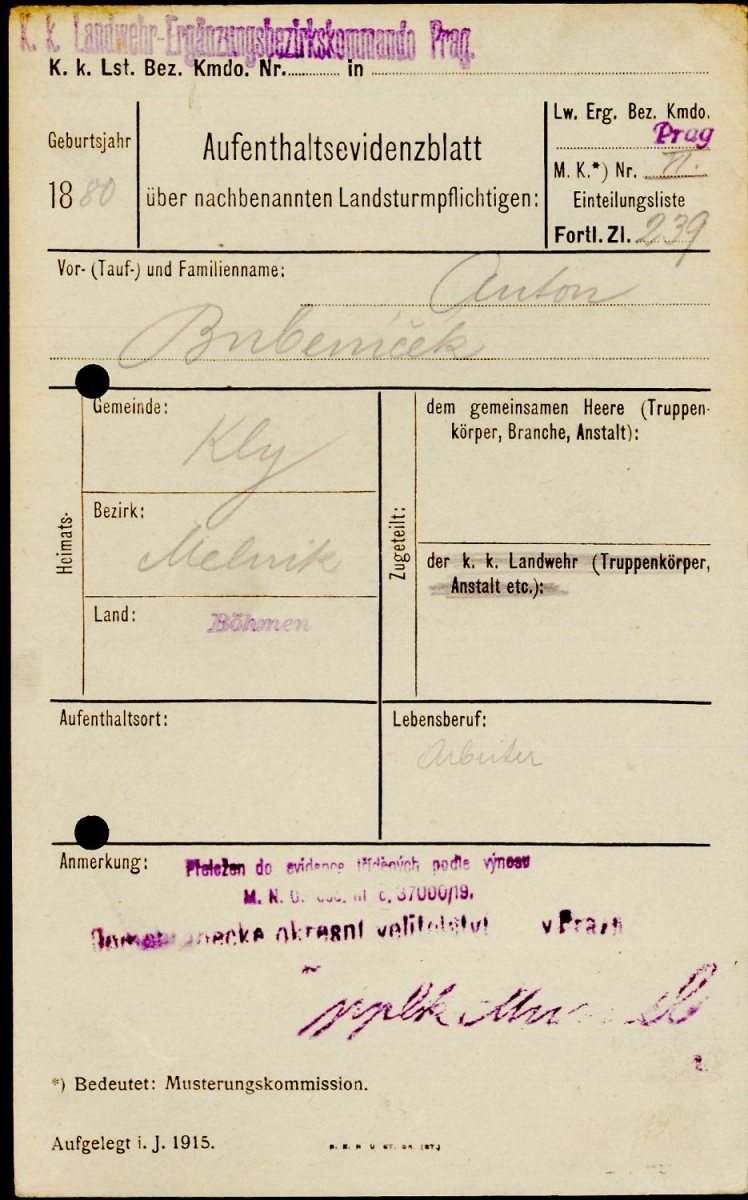 K. k. Landwehr-Ergänzungsbezirkskommando Prag.
K. k. Lst. Bez. Kmdo. Nr. in
Geburtsjahr
1880
Aufenthaltsevidenzblatt
über nachbenannten Landsturmpflichtigen:
Lw. Erg. Bez. Kmdo.
Prag
M. K.*) Nr. VI.
Einteilungsliste
Fortl. Zl. 239
Vor- (Tauf-) und Familienname:
Anton
Bubeníček
Heimats-
Gemeinde:
Kly
Bezirk:
Melnik
Land:
Böhmen
Zugeteilt:
dem gemeinsamen Heere (Truppen-
körper, Branche, Anstalt):
der k. k. Landwehr (Truppenkörper,
Anstalt etc.):
Aufenthaltsort:
Lebensberuf:
Arbeiter
Anmerkung:
Přeložen do evidence tříděných podle výnosu
M. N. O. č. 37000/19.
okresní velitelství v Praze
*) Bedeutet: Musterungskommission.
Aufgelegt i. J. 1915.